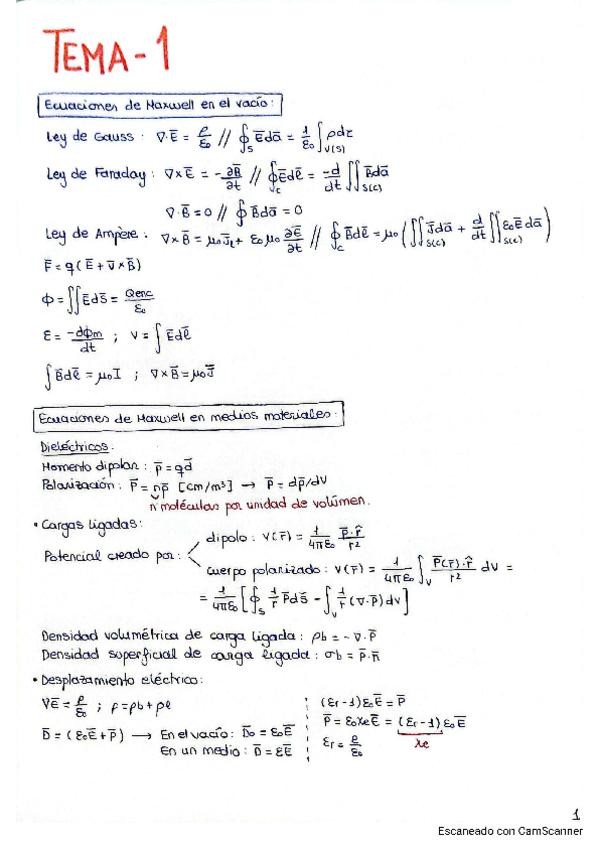 TEMA - 1
Ecuaciones de Maxwell en el vacío:
Ley de Gauss: ∇·E̅ = ρ/ε₀ // ∮_S E̅da̅ = 1/ε₀ ∫_V(S) ρdτ
Ley de Faraday: ∇×E̅ = -∂B̅/∂t // ∮_C E̅dl̅ = -d/dt ∬_S(C) B̅da̅
∇·B̅ = 0 // ∮ B̅da̅ = 0
Ley de Ampère: ∇×B̅ = μ₀J̅ₜ + ε₀μ₀ ∂E̅/∂t // ∮_C B̅dl̅ = μ₀ (∬_S(C) J̅da̅ + d/dt ∬_S(C) ε₀E̅da̅)
F̅ = q(E̅ + v̅×B̅)
Φ = ∬ E̅ds̅ = Qenc/ε₀
ε = -dϕm/dt ; V = ∫ E̅dl̅
∫ B̅dl̅ = μ₀I ; ∇×B̅ = μ₀J̅
Ecuaciones de Maxwell en medios materiales:
Dieléctricos:
Momento dipolar: p̅ = qd̅
Polarización: P̅ = np̅ [cm/m³] → P̅ = dp̅/dV
n moléculas por unidad de volúmen.
• Cargas ligadas:
dipolo: V(r̅) = 1/4πε₀ p̅·r̂/r²
Potencial creado por:
cuerpo polarizado: V(r̅) = 1/4πε₀ ∫_V P̅(r̅)·r̂/r² dV =
= 1/4πε₀ [∮_S 1/r P̅ds̅ - ∫_V 1/r (∇·P̅)dV]
Densidad volumétrica de carga ligada: ρb = -∇·P̅
Densidad superficial de carga ligada: σb = P̅·n̅
• Desplazamiento eléctrico:
∇E̅ = ρ/ε₀ ; ρ = ρb + ρl
D̅ = (ε₀E̅ + P̅) → En el vacío: D̅₀ = ε₀E̅
En un medio: D̅ = εE̅
(εr - 1)ε₀E̅ = P̅
P̅ = ε₀χeE̅ = (εr - 1)ε₀E̅
χe
εr = ε/ε₀
1
Escaneado con CamScanner